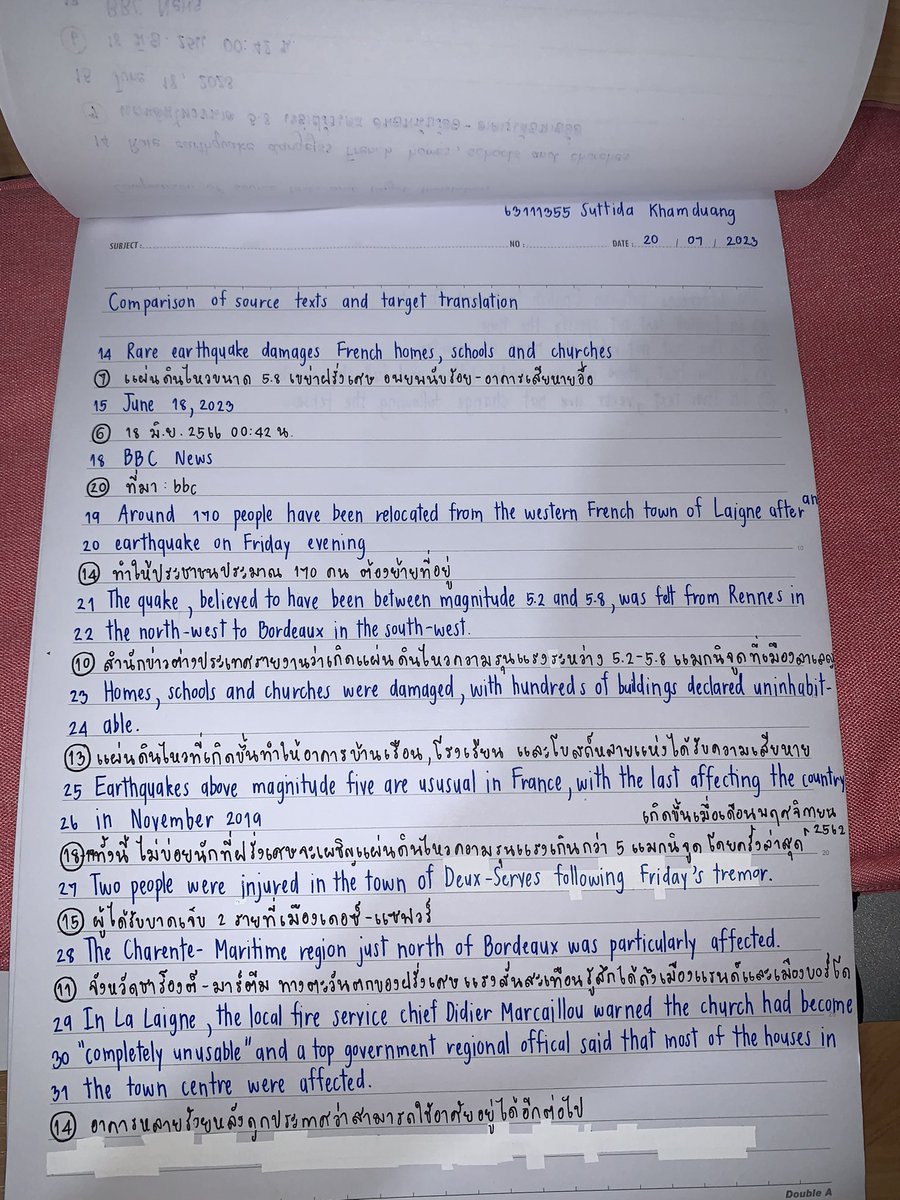 63111355 Suttida Khamduang
SUBJECT : NO : DATE : 20 / 07 / 2023
Comparison of source texts and target translation
14 Rare earthquake damages French homes, schools and churches
7 แผ่นดินไหวขนาด 5.8 เขย่าฝรั่งเศษ อพยพนับร้อย-อาคารเสียหายอื้อ
15 June 18, 2023
6 18 มิ.ย. 2566 00:42 น.
18 BBC News
20 ที่มา : bbc
19 Around 170 people have been relocated from the western French town of Laigne after an
20 earthquake on Friday evening
14 ทำให้ประชาชนประมาณ 170 คน ต้องย้ายที่อยู่
21 The quake, believed to have been between magnitude 5.2 and 5.8, was felt from Rennes in
22 the north-west to Bordeaux in the south-west.
10 สำนักข่าวต่างประเทศรายงานว่าเกิดแผ่นดินไหวความรุนแรงระหว่าง 5.2-5.8 แมกนิจูดที่เมืองลาเลญ
23 Homes, schools and churches were damaged, with hundreds of buildings declared uninhabit-
24 able.
13 แผ่นดินไหวที่เกิดขึ้นทำให้อาคารบ้านเรือน, โรงเรียน และโบสถ์หลายแห่งได้รับความเสียหาย
25 Earthquakes above magnitude five are ususual in France, with the last affecting the country
26 in November 2019
18 ทั้งนี้ ไม่บ่อยนักที่ฝรั่งเศษจะเผชิญแผ่นดินไหวความรุนแรงเกินกว่า 5 แมกนิจูด โดยครั้งล่าสุด เกิดขึ้นเมื่อเดือนพฤศจิกายน 2562
27 Two people were injured in the town of Deux-Serves following Friday's tremor.
15 ผู้ได้รับบาดเจ็บ 2 รายที่เมืองเดอซ์-แซฟวร์
28 The Charente-Maritime region just north of Bordeaux was particularly affected.
11 จังหวัดชาร็องต์-มาร์ตีม ทางตะวันตกของฝรั่งเศษ แรงสั่นสะเทือนรู้สึกได้ถึงเมืองแรนด์และเมืองบอร์โด
29 In La Laigne, the local fire service chief Didier Marcaillou warned the church had become
30 "completely unusable" and a top government regional offical said that most of the houses in
31 the town centre were affected.
14 อาคารหลายร้อยหลังถูกประกาศว่าสามารถใช้อาศัยอยู่ได้อีกต่อไป
Double A